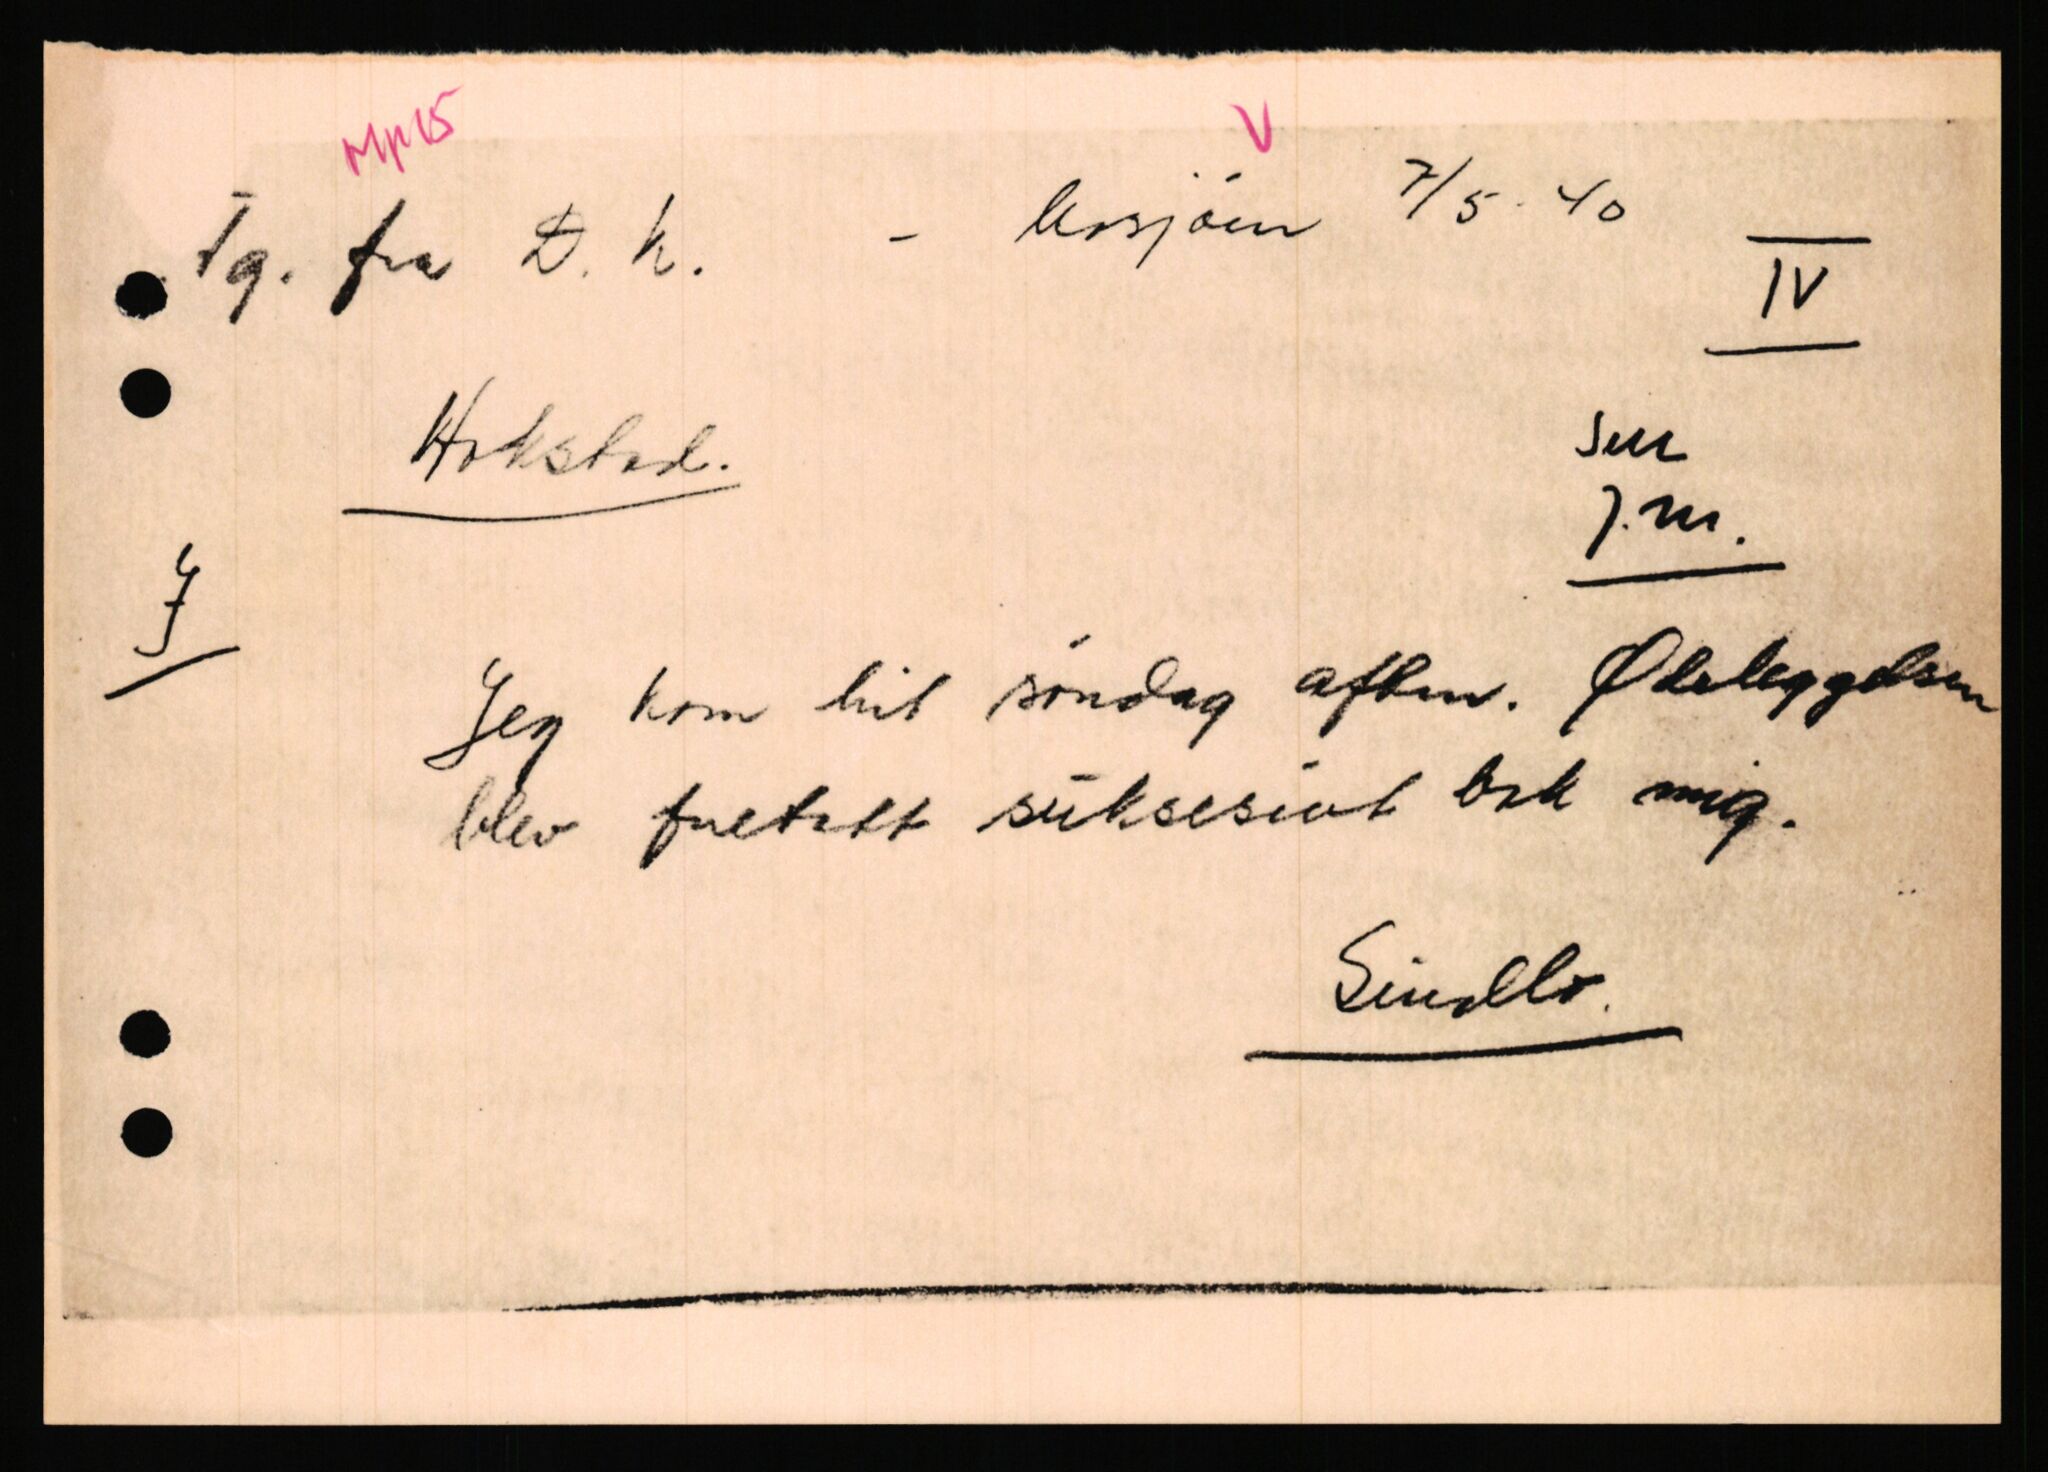 V
Tg. fra D. K. - Mosjøen 7/5-40
IV
Hokstad.
Sen
J. M.
J
Jeg kom hit søndag aften. Ødeleggelsen
blev foretatt suksesivt bak mig.